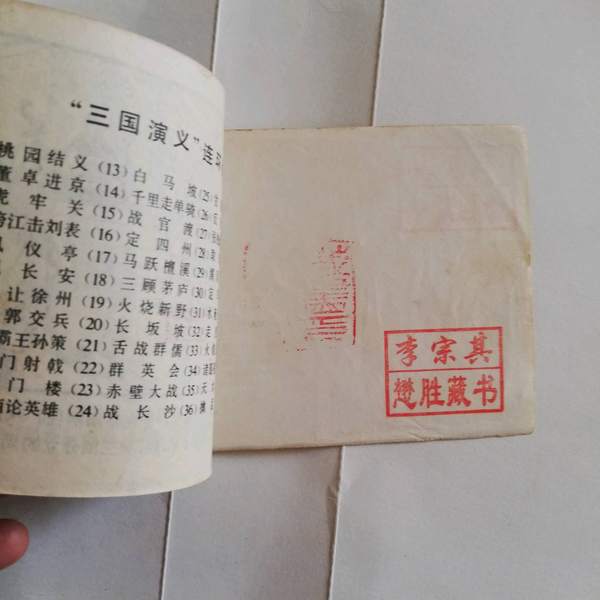 “三国演义”连环
桃园结义 (13) 白马坡 (25)
董卓进京 (14) 千里走单骑 (26)
虎牢关 (15) 战官渡 (27)
跨江击刘表 (16) 定四州 (28)
凤仪亭 (17) 马跃檀溪 (29)
长安 (18) 三顾茅庐 (30) 定
让徐州 (19) 火烧新野 (31)
郭交兵 (20) 长坂坡 (32) 走
霸王孙策 (21) 舌战群儒 (33) 火
门射戟 (22) 群英会 (34)
门楼 (23) 赤壁大战 (35) 天
论英雄 (24) 战长沙 (36)
李宗其
懋胜藏书